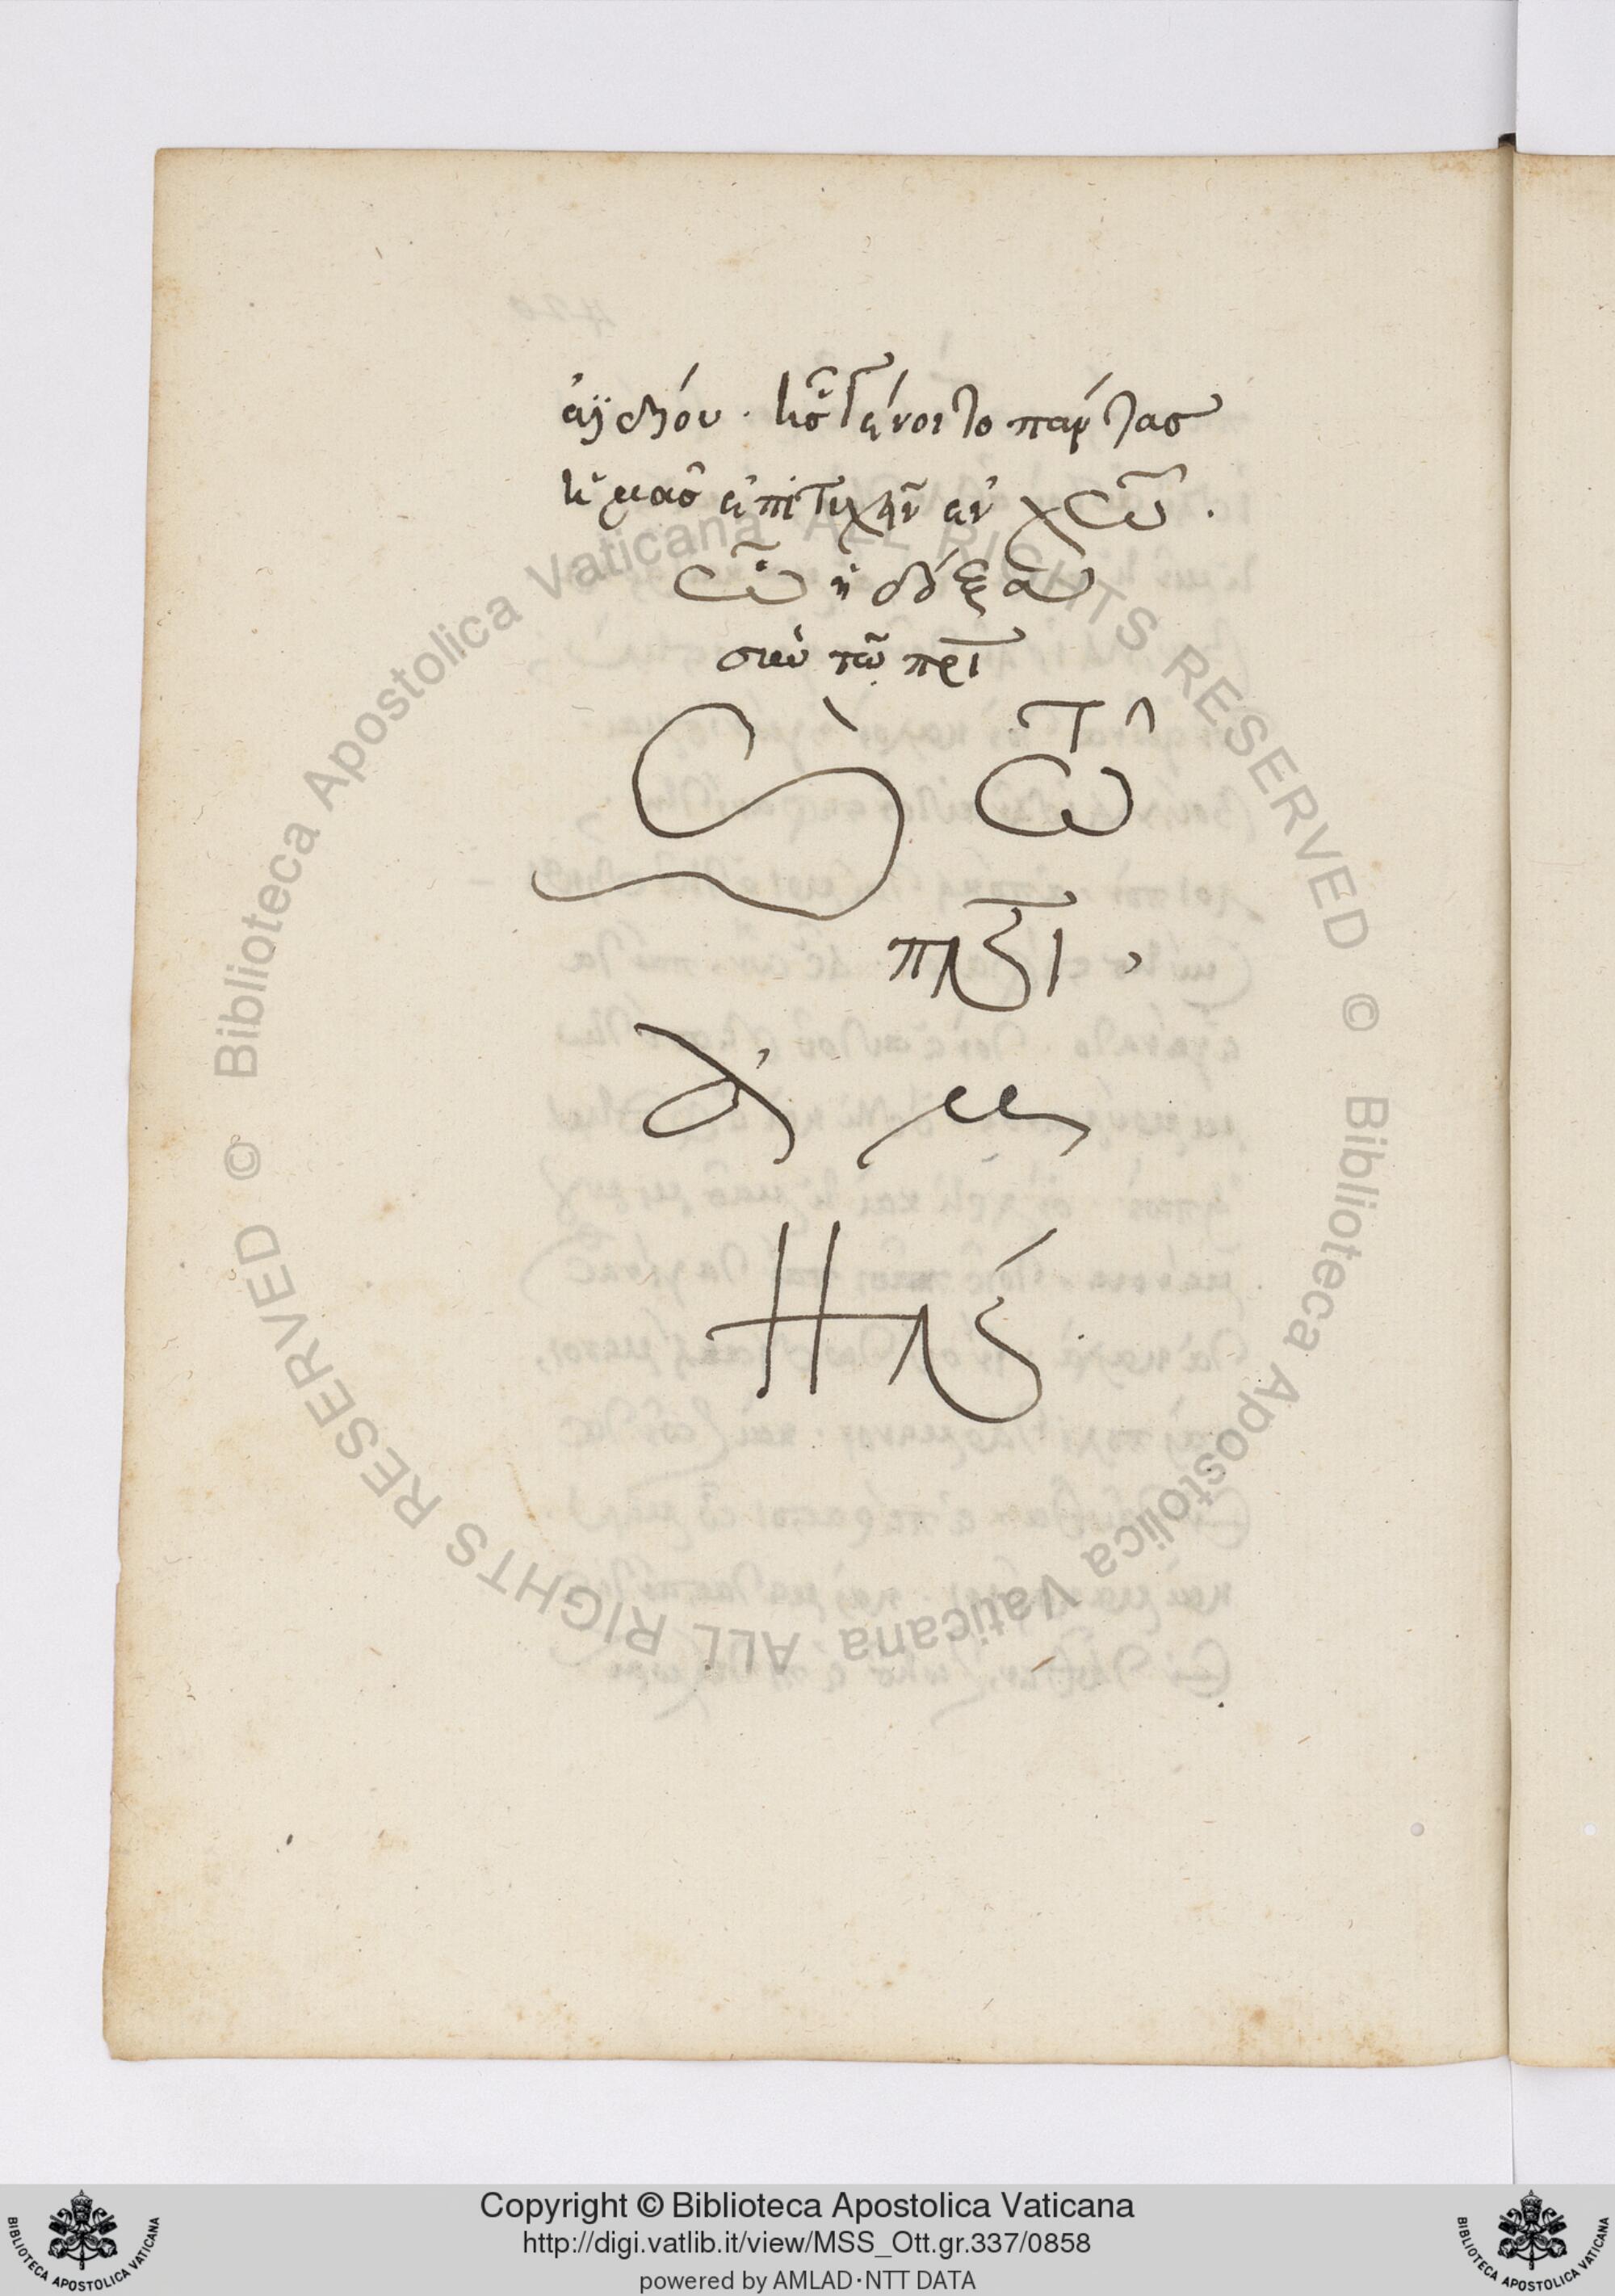 ἀϊδίου. ἧς γένοιτο πάντας
ἡμᾶς ἐπιτυχεῖν ἐν χω̅.
ᾧ ἡ δόξα
σὺν τῷ πρι̅
ϗ̀ τῷ
πνι̅,
ἀμ
ήν.
© Biblioteca Apostolica Vaticana ALL RIGHTS RESERVED © Biblioteca Apostolica Vaticana ALL RIGHTS RESERVED
Copyright © Biblioteca Apostolica Vaticana
http://digi.vatlib.it/view/MSS_Ott.gr.337/0858
powered by AMLAD·NTT DATA
BIBLIOTECA APOSTOLICA VATICANA
BIBLIOTECA APOSTOLICA VATICANA